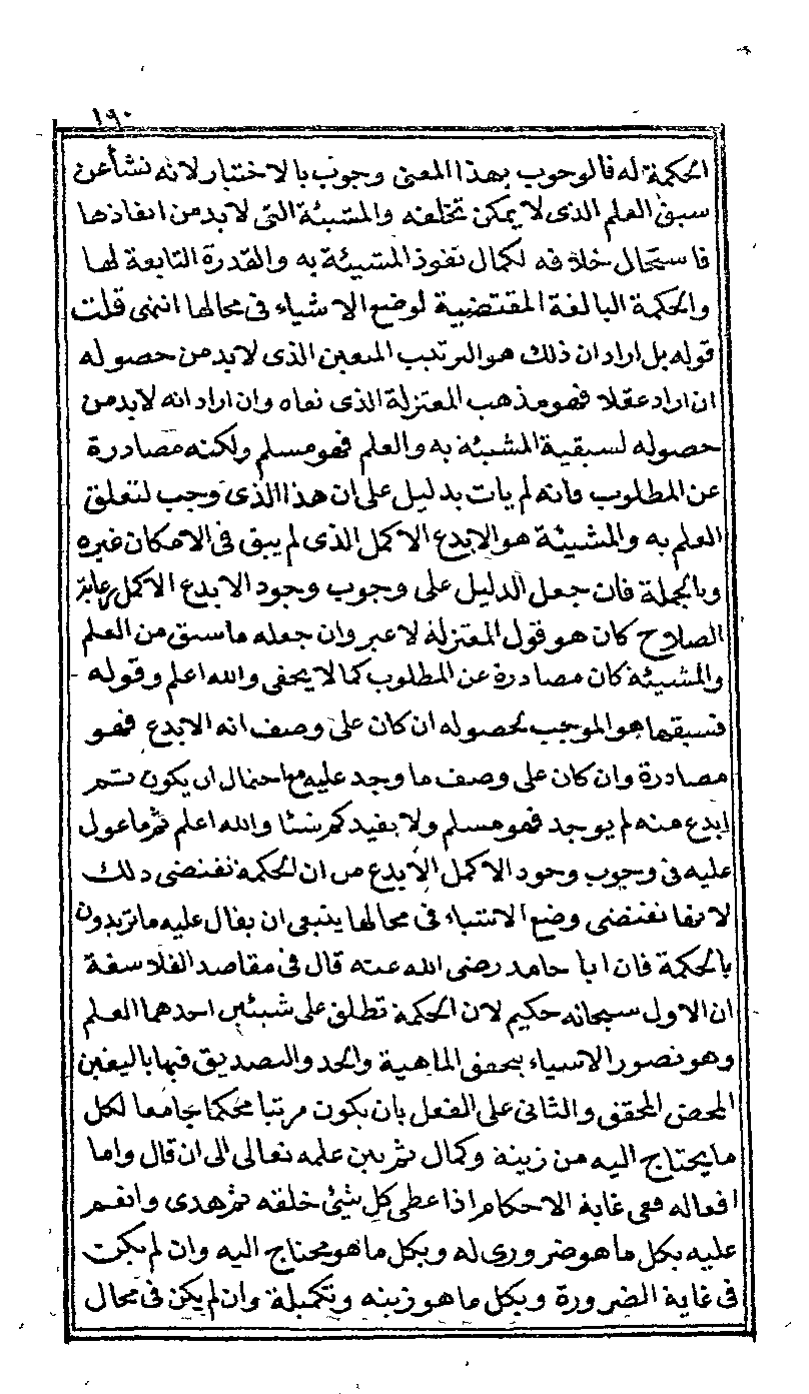 ١٩٠
الحكمة له فالوجوب بهذا المعنى وجوب بالاختيار لانه نشأ عن
سبق العلم الذى لا يمكن تخلفه والمشيئة التى لابد من انفاذها
فاستحال خلافه لكمال نفوذ المشيئة به والقدرة التابعة لها
والحكمة البالغة المقتضية لوضع الاشياء فى محالها انتهى قلت
قوله بل اراد ان ذلك هو الترتيب المعين الذى لابد من حصوله
ان اراد عقلا فهو مذهب المعتزلة الذى نفاه وان اراد انه لابد من
حصوله لسبقية المشيئة به والعلم فهو مسلم ولكنه مصادرة
عن المطلوب فانه لم يات بدليل على ان هذا الذى وجب لتعلق
العلم به والمشيئة هو الابدع الاكمل الذى لم يبق فى الامكان غيره
وبالجملة فان جعل الدليل على وجوب وجود الابدع الاكمل رعاية
الصلاح كان هو قول المعتزلة لا غير وان جعله ما سبق من العلم
والمشيئة كان مصادرة عن المطلوب كما لا يخفى والله اعلم وقوله
فسبقهما هو الموجب لحصوله ان كان على وصف انه الابدع فهو
مصادرة وان كان على وصف ما وجد عليه مع احتمال ان يكون ثم
ابدع منه لم يوجد فهو مسلم ولا يفيدكم شيئا والله اعلم ثم ما عول
عليه فى وجوب وجود الاكمل الابدع من ان الحكمة تقتضى ذلك
لانها تقتضى وضع الاشياء فى محالها ينبغى ان يقال عليه ما تريدون
بالحكمة فان ابا حامد رضى الله عنه قال فى مقاصد الفلاسفة
ان الاول سبحانه حكيم لان الحكمة تطلق على شيئين احدهما العلم
وهو تصور الاشياء بتحقق الماهية والحد والتصديق فيها باليقين
المحض المحقق والثانى على الفعل بان يكون مرتبا محكما جامعا لكل
ما يحتاج اليه من زينة وكمال ثم بين علمه تعالى الى ان قال واما
افعاله ففى غاية الاحكام اذ اعطى كل شئ خلقه ثم هدى وانعم
عليه بكل ما هو ضرورى له وبكل ما هو محتاج اليه وان لم يكن
فى غاية الضرورة وبكل ما هو زينه وتكملة وان لم يكن فى محال